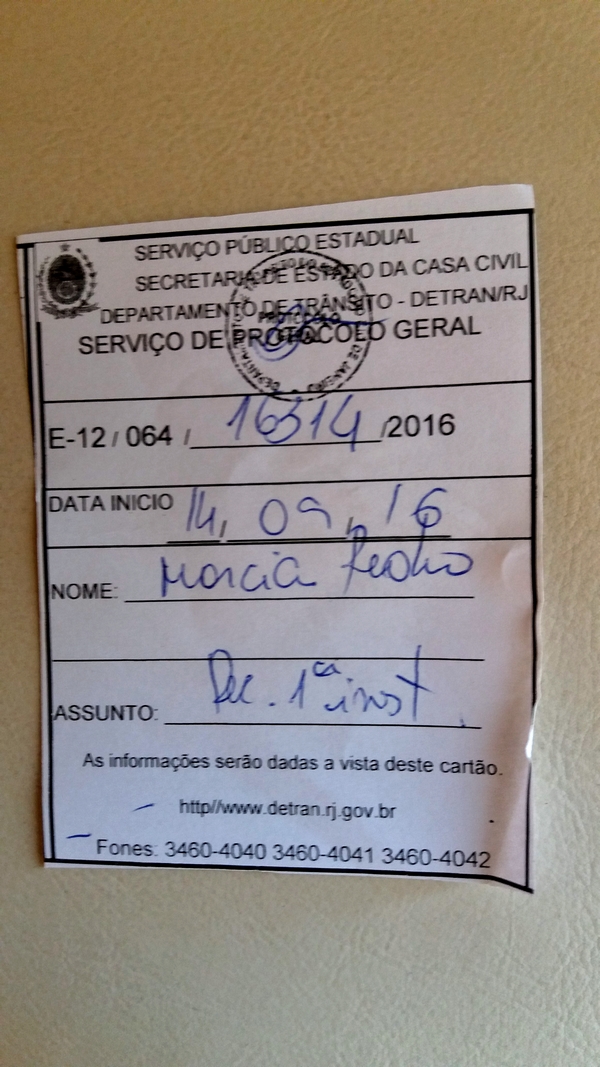 SERVIÇO PÚBLICO ESTADUAL
SECRETARIA DE ESTADO DA CASA CIVIL
DEPARTAMENTO DE TRÂNSITO - DETRAN/RJ
SERVIÇO DE PROTOCOLO GERAL
E-12 / 064 / 16314 /2016
DATA INICIO 14, 09, 16
NOME: Marcia Pedro
ASSUNTO: 1ª inst.
As informações serão dadas a vista deste cartão.
http//www.detran.rj.gov.br
Fones: 3460-4040 3460-4041 3460-4042